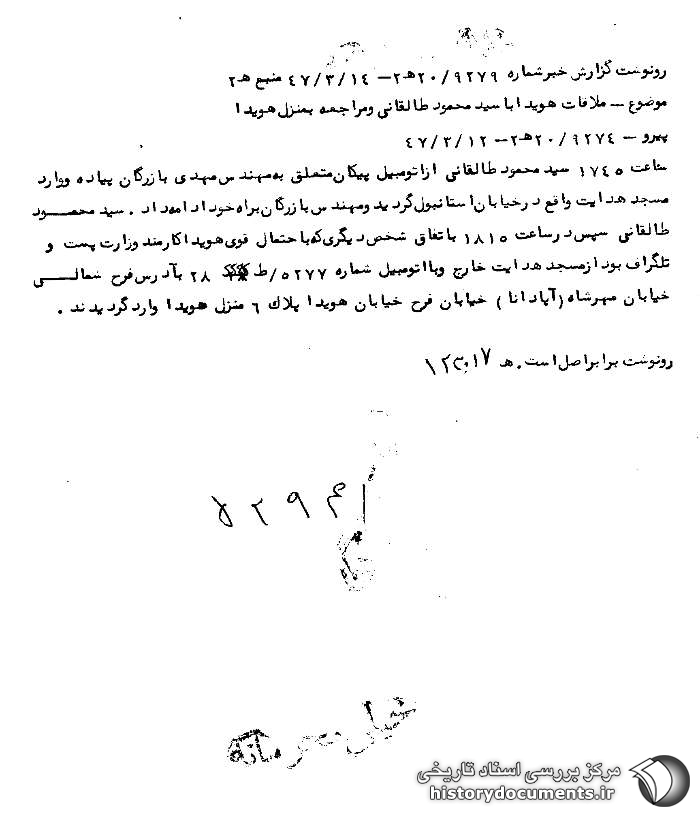 رونوشت گزارش خبر شماره ۹۲۷۹/ ۲۰ه‍ ۲– ۴۷/۳/۱۴ منبع ه‍ ۲
موضوع – ملاقات هویدا با سید محمود طالقانی و مراجعه بمنزل هویدا
پیرو – ۹۲۷۴/ ۲۰ه‍ ۲– ۴۷/۳/۱۲
ساعت ۱۷۴۵ سید محمود طالقانی از اتومبیل پیکان متعلق به مهندس مهدی بازرگان پیاده و وارد
مسجد هدایت واقع در خیابان استانبول گردید و مهندس بازرگان براه خود ادامه داد . سید محمود
طالقانی سپس در ساعت ۱۸۱۵ باتفاق شخص دیگری که با حتمال قوی هویدا کارمند وزارت پست و
تلگراف بود از مسجد هدایت خارج و با اتومبیل شماره ۵۲۷۷/ ط ۲۸ بآدرس فرح شمالی
خیابان مهرشاه (آپادانا ) خیابان فرح خیابان هویدا پلاك ۶ منزل هویدا وارد گردیدند .
رونوشت برابر اصل است . ه‍
خیلی محرمانه
مرکز بررسی اسناد تاریخی
historydocuments.ir